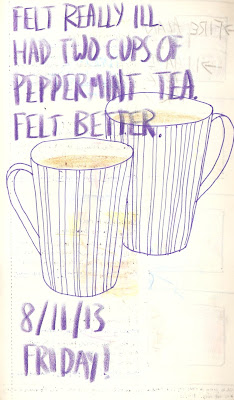 FELT REALLY ILL.
HAD TWO CUPS OF
PEPPERMINT TEA.
FELT BETTER.
8/11/13
FRIDAY!